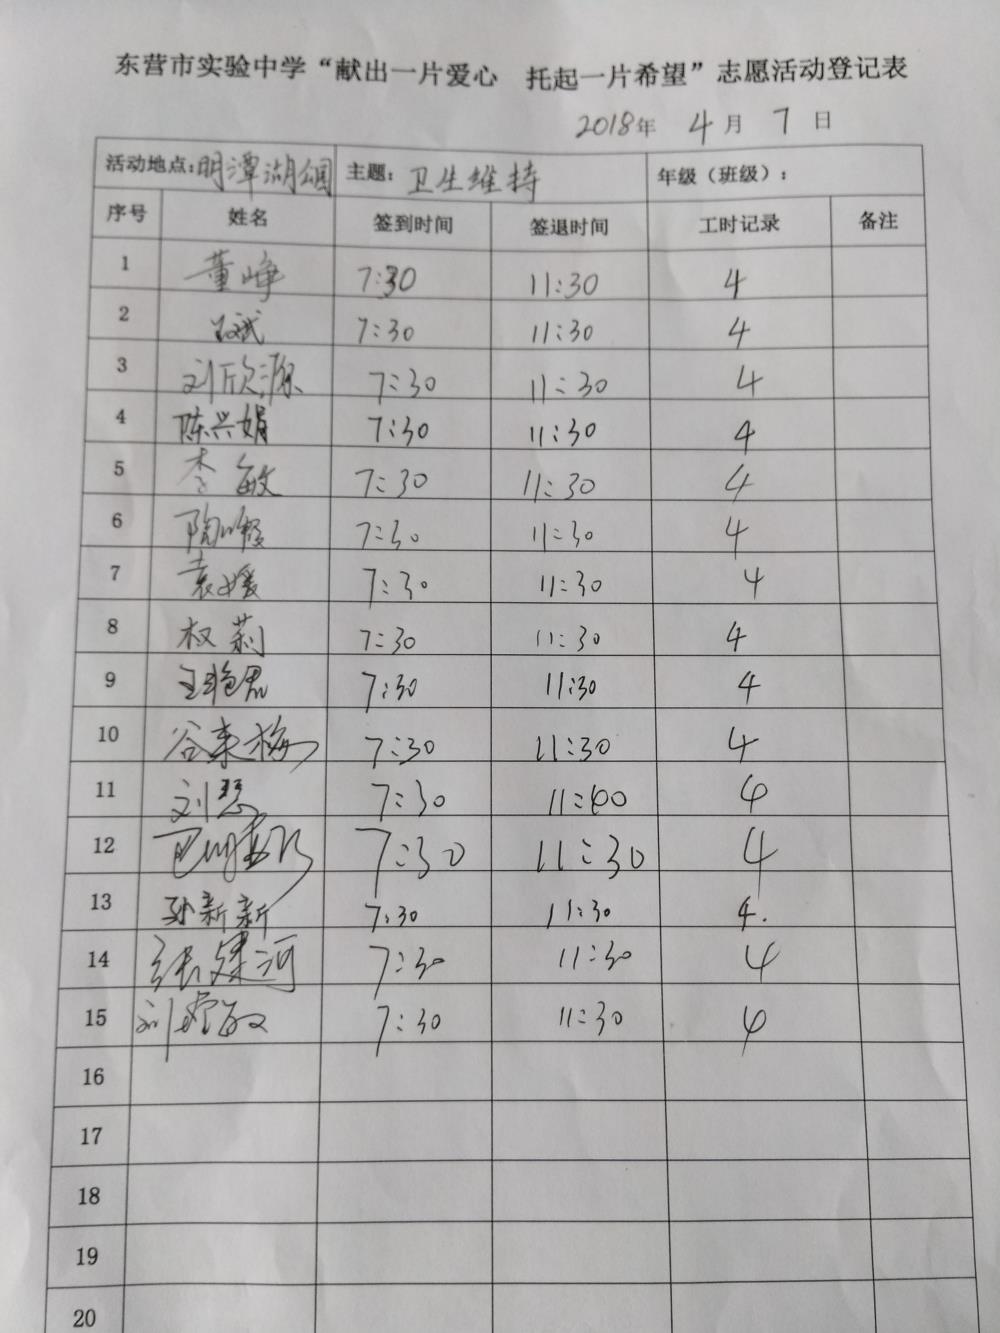 东营市实验中学“献出一片爱心 托起一片希望”志愿活动登记表
2018年 4月 7日
活动地点:明潭湖公园 主题: 卫生维持 年级（班级）:
序号 姓名 签到时间 签退时间 工时记录 备注
1 董峥 7:30 11:30 4
2 7:30 11:30 4
3 刘欣源 7:30 11:30 4
4 陈兴娟 7:30 11:30 4
5 李敏 7:30 11:30 4
6 陶 7:30 11:30 4
7 袁媛 7:30 11:30 4
8 权莉 7:30 11:30 4
9 王艳君 7:30 11:30 4
10 谷来梅 7:30 11:30 4
11 刘慧 7:30 4
12 7:30 11:30 4
13 孙新新 7:30 11:30 4.
14 张建河 7:30 11:30 4
15 刘 敏 7:30 11:30 4
16
17
18
19
20